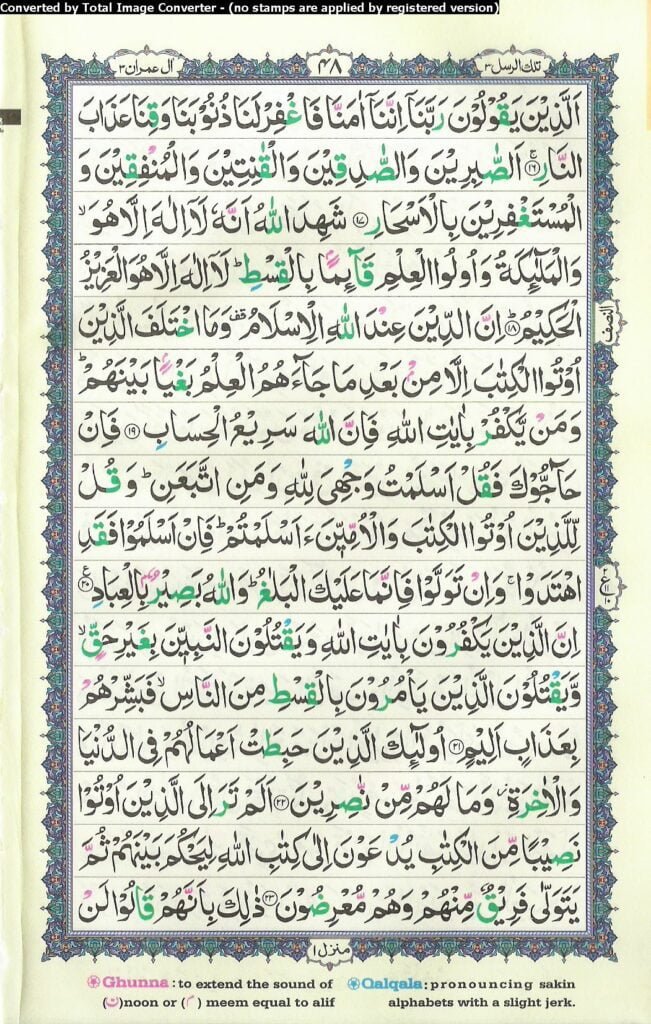 Converted by Total Image Converter - (no stamps are applied by registered version)
تلك الرسل ٣
٤٨
آل عمران ٣
الَّذِيْنَ يَقُوْلُوْنَ رَبَّنَاۤ اِنَّنَاۤ اٰمَنَّا فَاغْفِرْ لَنَا ذُنُوْبَنَا وَقِنَا عَذَابَ
النَّارِۚ ﴿۱۶﴾ اَلصّٰبِرِيْنَ وَالصّٰدِقِيْنَ وَالْقٰنِتِيْنَ وَالْمُنْفِقِيْنَ وَ
الْمُسْتَغْفِرِيْنَ بِالْاَسْحَارِ ﴿۱۷﴾ شَهِدَ اللّٰهُ اَنَّهٗ لَاۤ اِلٰهَ اِلَّا هُوَۙ
وَالْمَلٰٓئِكَةُ وَاُولُوا الْعِلْمِ قَآئِمًۢا بِالْقِسْطِؕ لَاۤ اِلٰهَ اِلَّا هُوَ الْعَزِيْزُ
الْحَكِيْمُؕ ﴿۱۸﴾ اِنَّ الدِّيْنَ عِنْدَ اللّٰهِ الْاِسْلَامُ قف وَمَا اخْتَلَفَ الَّذِيْنَ
النصف
اُوْتُوا الْكِتٰبَ اِلَّا مِنْۢ بَعْدِ مَا جَآءَهُمُ الْعِلْمُ بَغْيًۢا بَيْنَهُمْؕ
وَمَنْ يَّكْفُرْ بِاٰيٰتِ اللّٰهِ فَاِنَّ اللّٰهَ سَرِيْعُ الْحِسَابِ ﴿۱۹﴾ فَاِنْ
حَآجُّوْكَ فَقُلْ اَسْلَمْتُ وَجْهِيَ لِلّٰهِ وَمَنِ اتَّبَعَنِؕ وَقُلْ
لِّلَّذِيْنَ اُوْتُوا الْكِتٰبَ وَالْاُمِّيّٖنَ ءَاَسْلَمْتُمْؕ فَاِنْ اَسْلَمُوْا فَقَدِ
اهْتَدَوْاۚ وَاِنْ تَوَلَّوْا فَاِنَّمَا عَلَيْكَ الْبَلٰغُؕ وَاللّٰهُ بَصِيْرٌۢ بِالْعِبَادِ ﴿۲۰﴾
اِنَّ الَّذِيْنَ يَكْفُرُوْنَ بِاٰيٰتِ اللّٰهِ وَيَقْتُلُوْنَ النَّبِيّٖنَ بِغَيْرِ حَقٍّۙ
وَّيَقْتُلُوْنَ الَّذِيْنَ يَاْمُرُوْنَ بِالْقِسْطِ مِنَ النَّاسِۙ فَبَشِّرْهُمْ
بِعَذَابٍ اَلِيْمٍ ﴿۲۱﴾ اُولٰٓئِكَ الَّذِيْنَ حَبِطَتْ اَعْمَالُهُمْ فِى الدُّنْيَا
وَالْاٰخِرَةِؗ وَمَا لَهُمْ مِّنْ نّٰصِرِيْنَ ﴿۲۲﴾ اَلَمْ تَرَ اِلَى الَّذِيْنَ اُوْتُوْا
نَصِيْبًا مِّنَ الْكِتٰبِ يُدْعَوْنَ اِلٰى كِتٰبِ اللّٰهِ لِيَحْكُمَ بَيْنَهُمْ ثُمَّ
يَتَوَلّٰى فَرِيْقٌ مِّنْهُمْ وَهُمْ مُّعْرِضُوْنَ ﴿۲۳﴾ ذٰلِكَ بِاَنَّهُمْ قَالُوْا لَنْ
منزل ۱
Ghunna: to extend the sound of (ن)noon or (م) meem equal to alif
Qalqala: pronouncing sakin alphabets with a slight jerk.